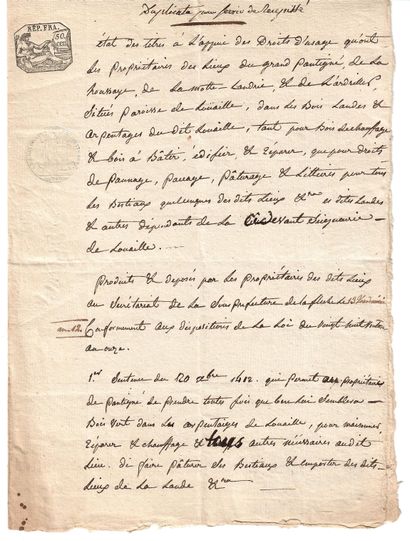 Duplicata pour servir de récépissé
RÉP. FRA.
50
CENT.
État des titres à l'appui des Droits d'usage qu'ont
Les propriétaires des Lieux du grand Pantigné, de La
houssaye, de La Motte Landrie, & de L'ardriller
Situés Paroisse de Louaille, dans Les Bois Landes &
arpentages du dit Louaille, tant pour Bois de chauffage
& bois à Bâtir, édifier & Réparer, que pour droits
de pannage, pacage, pâturage & Littieres pour tous
Les Bestiaux quelconques des dits Lieux &ra es dits Landes
& autres dependants de La Cidevant Seigneurie
de Louaille.
Produits & deposés par Les propriétaires des dits Lieux
au Secrétariat de La Sous préfecture de La fleche le 13
an 12 Conformément aux dispositions de La Loi du vingt huit
an onze.
1er Sentence du 20 xbre 1412. qui permet aux propriétaires
de Pantigné de prendre toutes fois que bon lui Semblera
Bois vert dans Les arpentages de Louaille, pour maisonner
Réparer & chauffage & tous autres nécessaires au dit
Lieu. de faire pâturer Ses Bestiaux & emporter des dits
Lieux de La Lande &ra